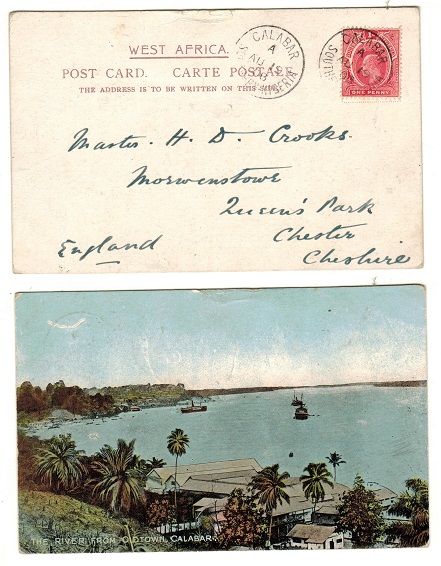 WEST AFRICA.
POST CARD. CARTE POSTALE.
THE ADDRESS IS TO BE WRITTEN ON THIS SIDE.
CALABAR
A
AU 15
CALABAR
A
AU 15
SOUTH
ONE PENNY
Master. H. D. Crooks.
Morwenstowe
Queen's Park
Chester
Cheshire
England
THE RIVER FROM OLDTOWN, CALABAR.